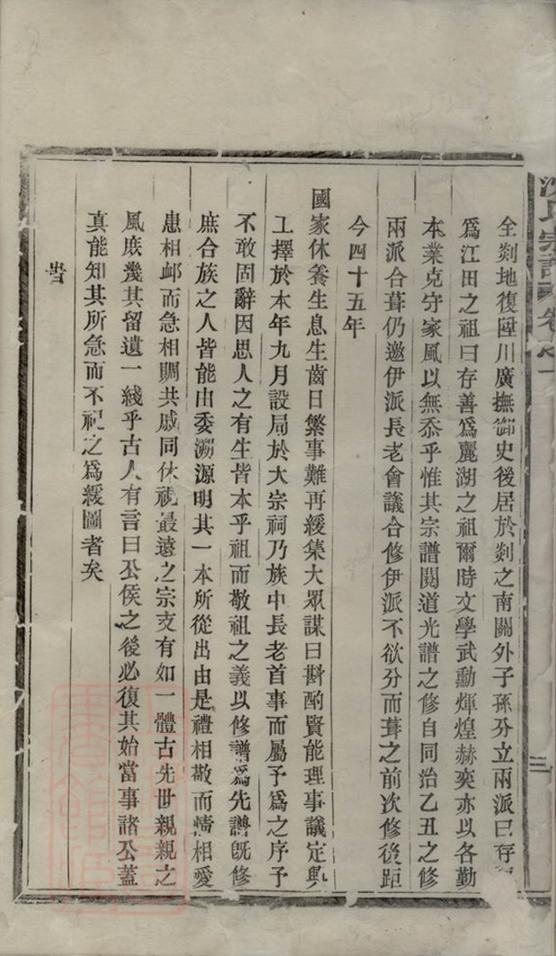 氏宗譜
全剡地復陞川廣撫御史後居於剡之南關外子孫分立兩派曰存
爲江田之祖曰存善爲麗湖之祖爾時文學武勳輝煌赫奕亦以各勤
本業克守家風以無忝乎惟其宗譜閱道光譜之修自同治乙丑之修
兩派合葺仍邀伊派長老會議合修伊派不欲分而葺之前次修後距
今四十五年
國家休養生息生齒日繁事難再緩集大眾謀曰斟酌賢能理事議定興
工擇於本年九月設局於大宗祠乃族中長老首事而屬予爲之序予
不敢固辭因思人之有生皆本乎祖而敬祖之義以修譜爲先譜旣修
庶合族之人皆能由委溯源明其一本所從出由是禮相敬而情相愛
患相卹而急相賙共戚同休視最遠之宗支有如一體古先世親親之
風庶幾其留遺一綫乎古人有言曰公侯之後必復其始當事諸公蓋
真能知其所急而不祀之爲緩圖者矣